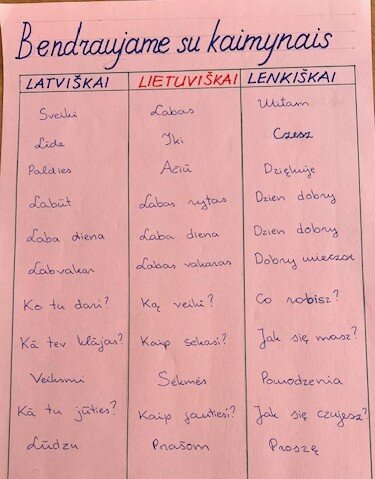 Bendraujame su kaimynais
LATVIŠKAI LIETUVIŠKAI LENKIŠKAI
Sveiki Labas Witam
Lidz Iki Czesz
Paldies Ačiū Dziękuje
Labūt Labas rytas Dzien dobry
Laba diena Laba diena Dzien dobry
Labvakar Labas vakaras Dobry wieczor
Ko tu dari? Ką veiki? Co robisz?
Kā tev klājas? Kaip sekasi? Jak się masz?
Veiksmi Sėkmės Powodzenia
Kā tu jūties? Kaip jautiesi? Jak się czujesz?
Lūdzu Prašom Proszę